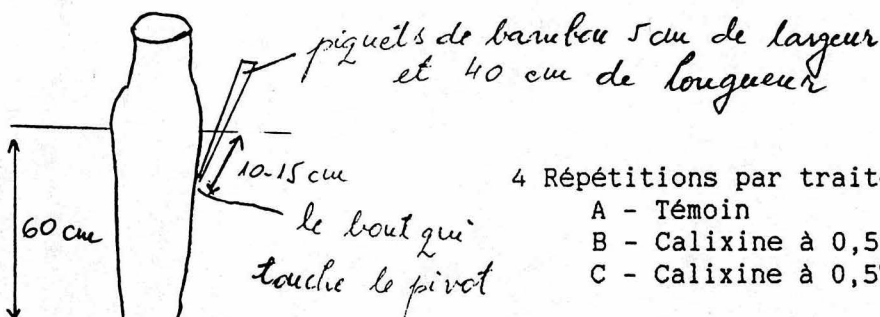 piquets de bambou 5 cm de largeur
et 40 cm de longueur
10-15 cm
60 cm
le bout qui
touche le pivot
4 Répétitions par trait
A - Témoin
B - Calixine à 0,5
C - Calixine à 0,5